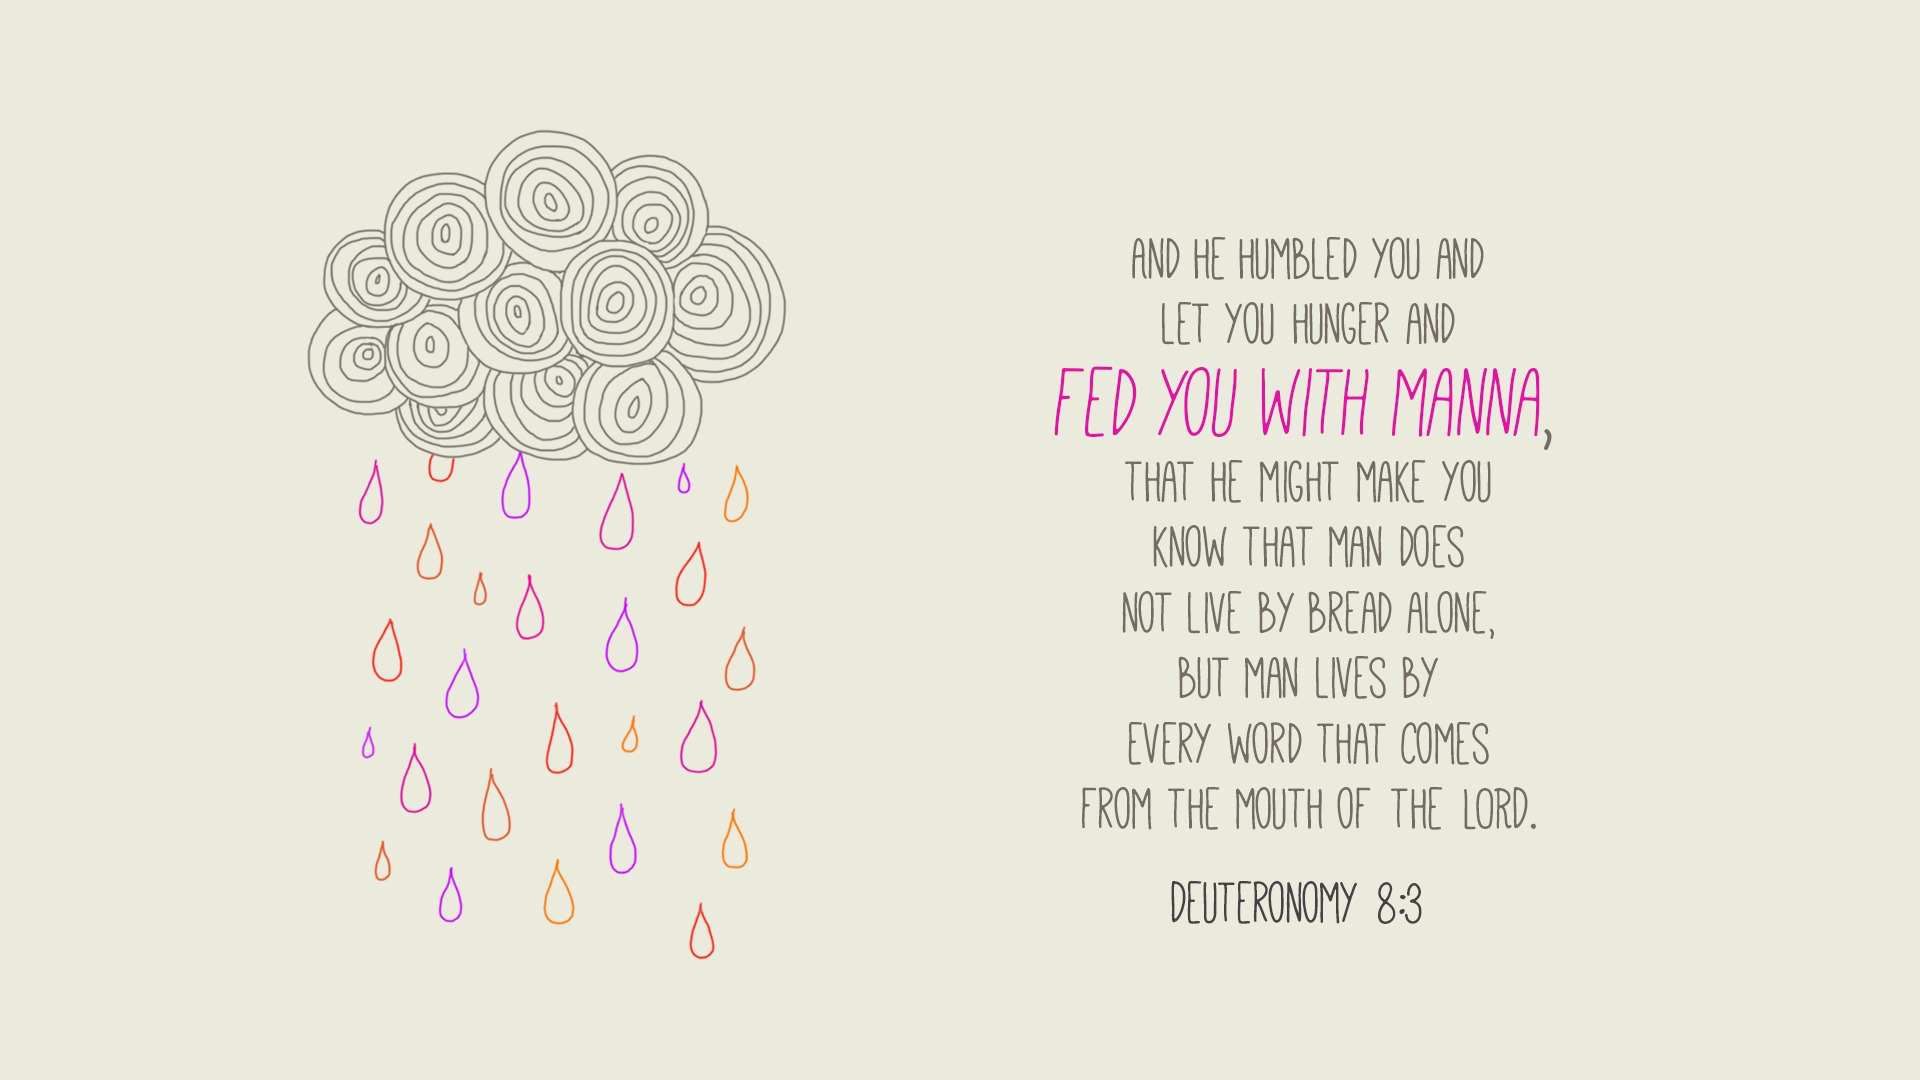 AND HE HUMBLED YOU AND
LET YOU HUNGER AND
FED YOU WITH MANNA,
THAT HE MIGHT MAKE YOU
KNOW THAT MAN DOES
NOT LIVE BY BREAD ALONE,
BUT MAN LIVES BY
EVERY WORD THAT COMES
FROM THE MOUTH OF THE LORD.
DEUTERONOMY 8:3